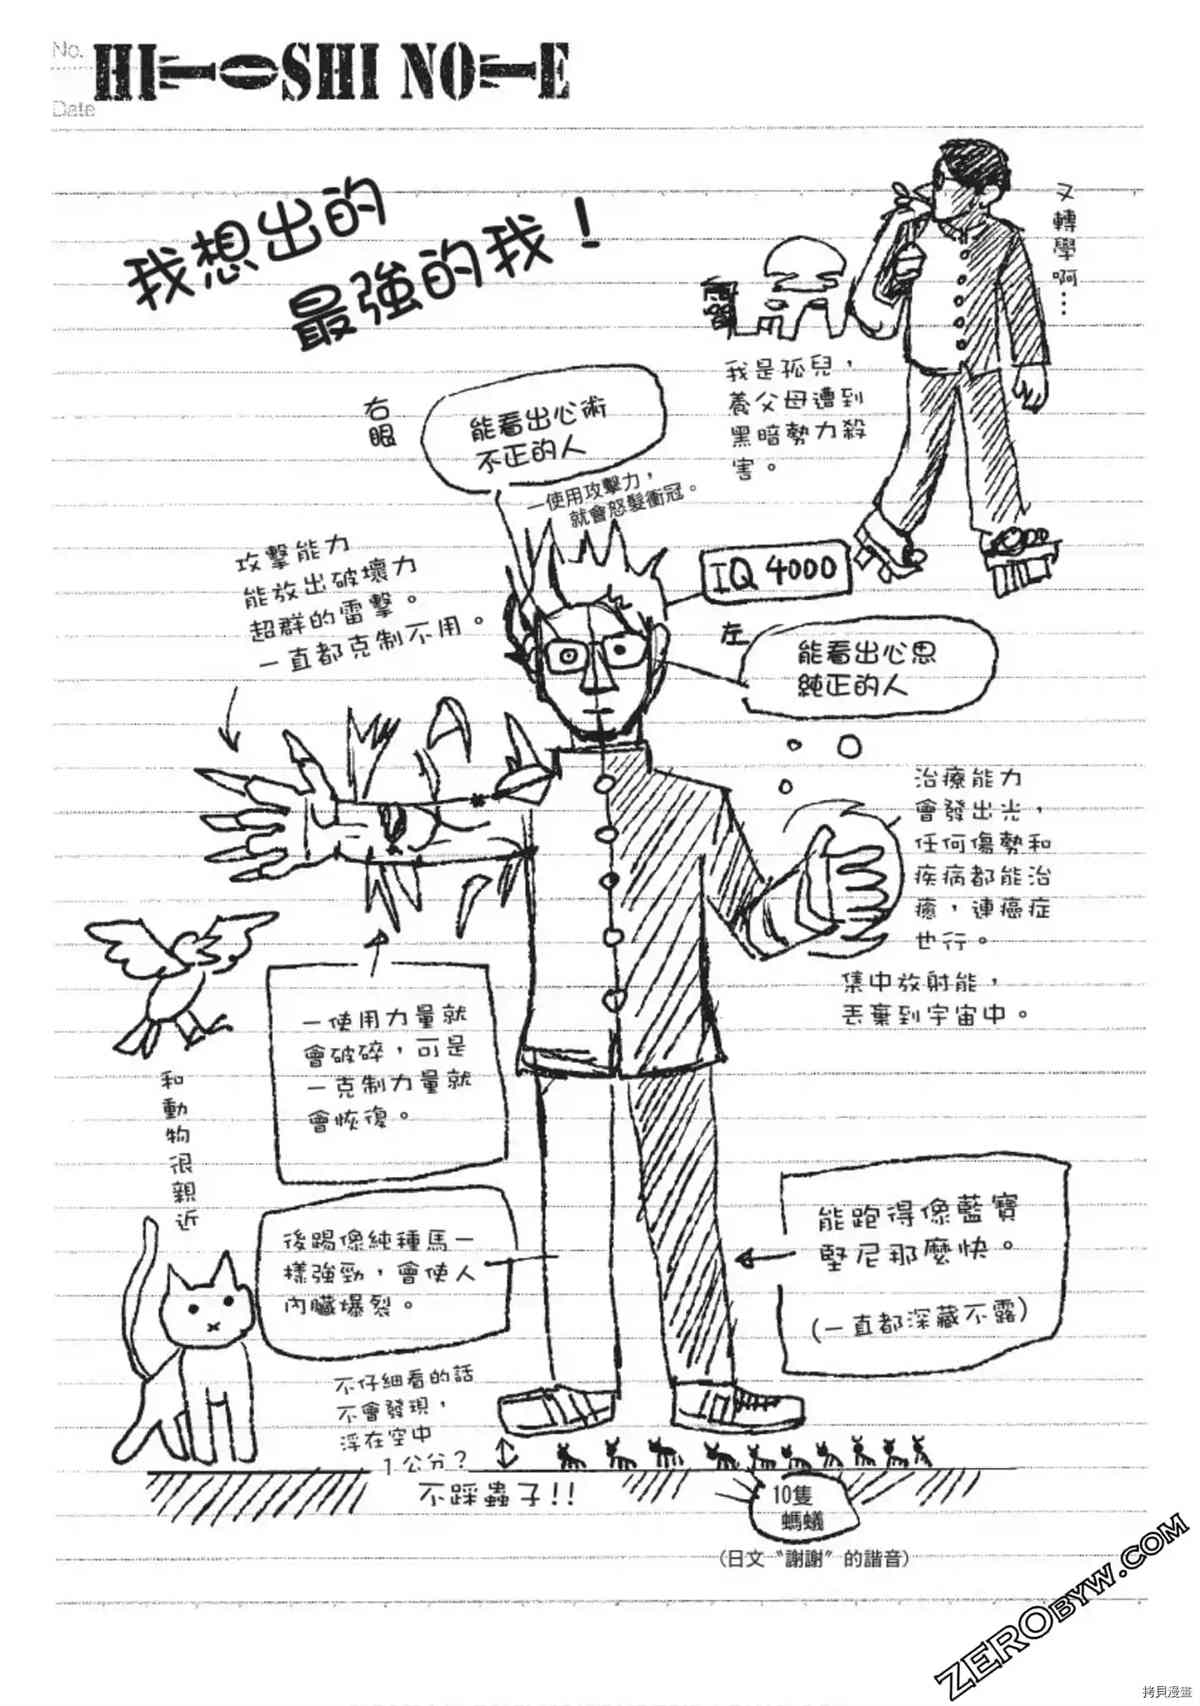 No.
HITOSHI NOTE
Date
我想出的
最強的我！
又轉學啊…
我是孤兒，
養父母遭到
黑暗勢力殺
害。
右眼
能看出心術
不正的人
一使用攻擊力，
就會怒髮衝冠。
攻擊能力
能放出破壞力
超群的雷擊。
一直都克制不用。
IQ 4000
左
能看出心思
純正的人
治療能力
會發出光，
任何傷勢和
疾病都能治
癒，連癌症
也行。
集中放射能，
丟棄到宇宙中。
一使用力量就
會破碎，可是
一克制力量就
會恢復。
和動物很親近
後踢像純種馬一
樣強勁，會使人
內臟爆裂。
能跑得像藍寶
堅尼那麼快。
(一直都深藏不露)
不仔細看的話
不會發現，
浮在空中
1公分？
不踩蟲子!!
10隻
螞蟻
(日文〝謝謝〞的諧音)
ZEROBYW.COM
拷貝漫畫